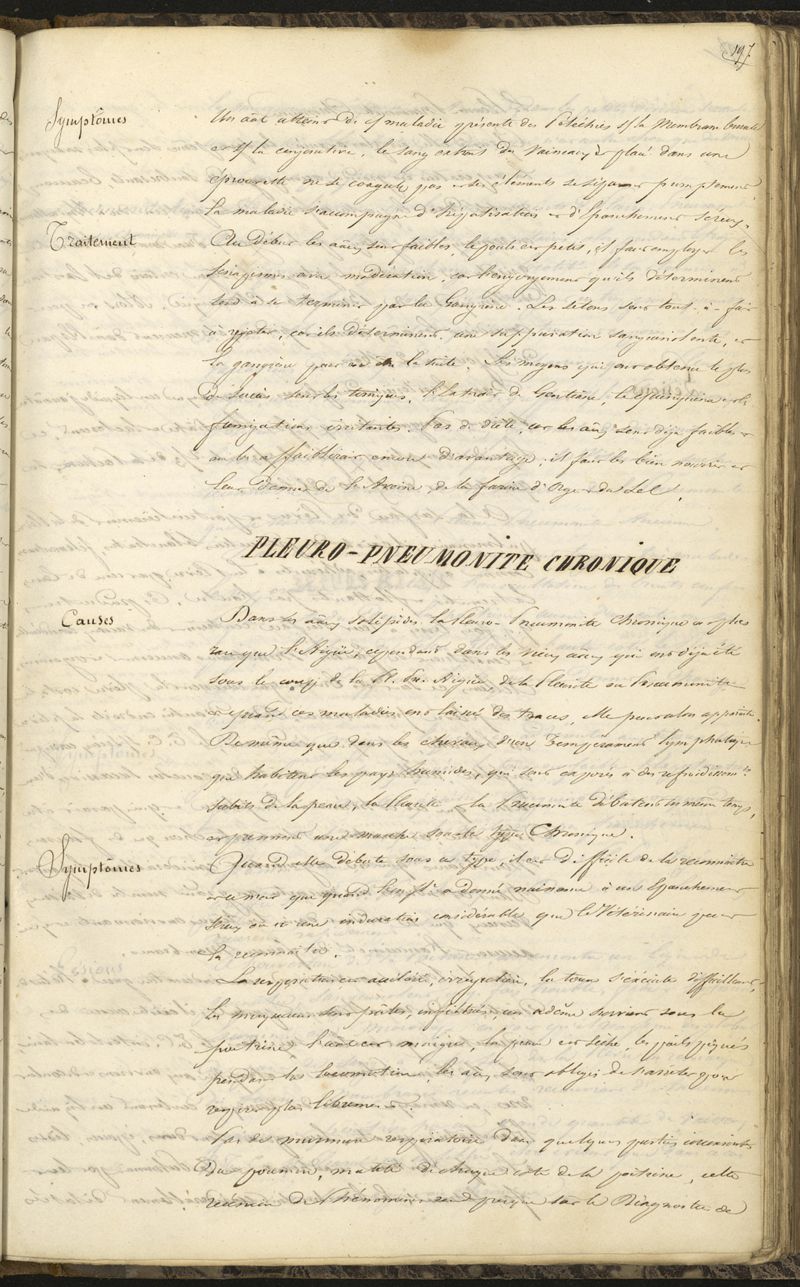 197.
Symptômes
Un anl atteint de cette maladie présente des Pétéchies s/ la Membrane buccale
et s/ la conjonctive, le sang extrait du vaisseau et placé dans une
éprouvette ne se coagule pas et les éléments se séparent promptement.
La maladie s'accompagne d'hépatisation et d'épanchement séreux.
Traitement
Au Début les anx sont faibles, le pouls est petit, il faut employer les
avec modération, car l'engorgement qu'ils déterminent
tend à se terminer par la Gangrène. Les Sétons sont tout-à-fait
à rejeter, car ils Déterminent une suppuration sanguinolente, et
la gangrène par la suite. Les moyens qui ont obtenu le plus
de succès sont les toniques, l'extrait de Gentiane, le Quinquina et les
fumigations irritantes. Pas de Diète, car les anx sont déjà faibles et
on les affaiblirait encore davantage, il faut les bien nourrir et
leur Donner de l'Avoine, de la farine d'Orge et du Sel.
PLEURO-PNEUMONITE CHRONIQUE
Causes
Dans les anx solipèdes la Pleuro-Pneumonite Chronique est plus
rare que l'Aigüe, cependant dans les vieux anx qui ont déjà été
sous le coup de la Pl. Pn. Aigüe, de la Pleurite ou Pneumonite
et quand ces maladies ont laissé des traces, elle peut alors apparaître.
De même que dans les chevaux d'un Tempérament lymphatique
qui habitent les pays humides, qui sont exposés à des refroidissemts
subits de la peau, la Pleurite et la Pneumonite débutent en même temps,
et prennent une marche sous le type Chronique.
Symptômes
Quand elle débute sous ce type, il est difficile de la reconnaître
et ce n'est que quand l'infln a donné naissance à un Epanchement
séreux ou à une induration considérable que le Vétérinaire peut
la reconnaître.
La respiration est accélérée, irrégulière, la toux s'exécute difficilement,
les muqueuses sont pâles, infiltrées, un œdème survient sous la
poitrine, l'anl est maigre, la peau est sèche, les poils piqués
pendant la locomotion, les anx sont obligés de s'arrêter pour
respirer plus librement.
Pas de murmure respiratoire dans quelques parties
du poumon, matité de chaque côté de la poitrine, cette
réunion de Phénomènes rend presque sur le Diagnostic de